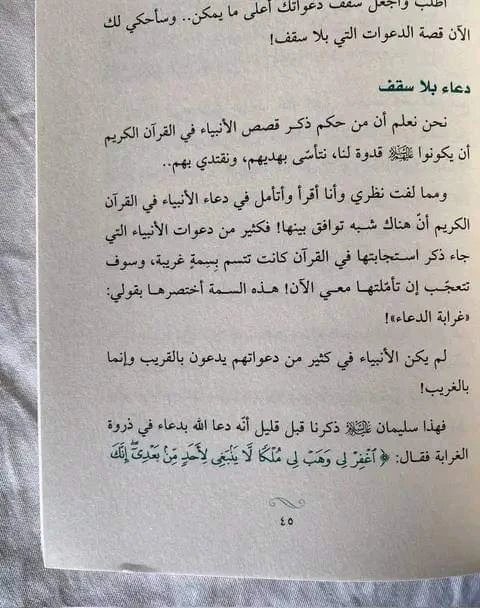 اطلب واجعل سقف دعواتك أعلى ما يمكن.. وسأحكي لك
الآن قصة الدعوات التي بلا سقف!
دعاء بلا سقف
نحن نعلم أن من حكم ذكر قصص الأنبياء في القرآن الكريم
أن يكونوا ﷺ قدوة لنا، نتأسّى بهديهم، ونقتدي بهم..
ومما لفت نظري وأنا أقرأ وأتأمل في دعاء الأنبياء في القرآن
الكريم أنّ هناك شبه توافق بينها! فكثير من دعوات الأنبياء التي
جاء ذكر استجابتها في القرآن كانت تتسم بِسِمةٍ غريبة، وسوف
تتعجّب إن تأمّلتها معي الآن! هذه السمة أختصرها بقولي:
«غرابة الدعاء»!
لم يكن الأنبياء في كثير من دعواتهم يدعون بالقريب وإنما
بالغريب!
فهذا سليمان ذكرنا قبل قليل أنّه دعا الله بدعاء في ذروة
الغرابة فقال: ﴿ ٱغْفِرْ لِى وَهَبْ لِى مُلْكًا لَّا يَنۢبَغِى لِأَحَدٍ مِّنۢ بَعْدِىٓ ۖ إِنَّكَ
٤٥